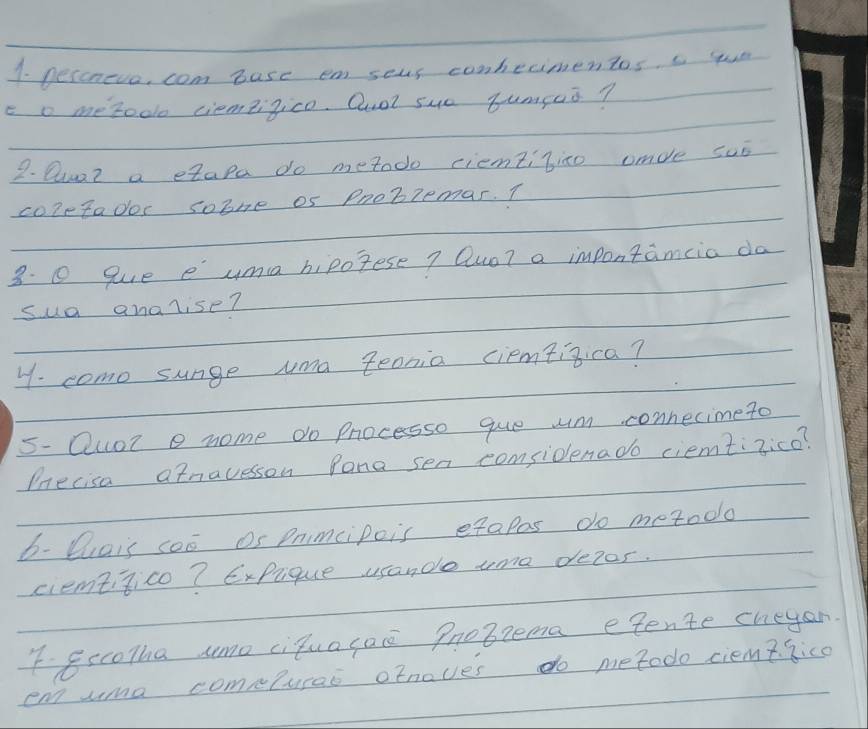 1. Descneva, com base em seus conhecimentos. o que
e o método ciemtífico. Qual sua fumção?
2. Qual a etapa do metodo ciemtífico omde são
coletados sobne os Pnoblemas. ?
3. O que é uma hipótese? Qual a impontâmcia da
sua analise?
4. como sunge uma teonia ciemtífica?
5- Qual o nome do Pnocesso que um connecimeto
Pnecisa atnavesson Pana sen comsidenado ciemtifico?
6- Quais são os Pnimcipais etapas do metodo
ciemtífico? Explique usando uma delas.
7- Escolha uma cituação Pnoblema e tente chegan.
em uma comclusão atnaves do metodo ciemtifico